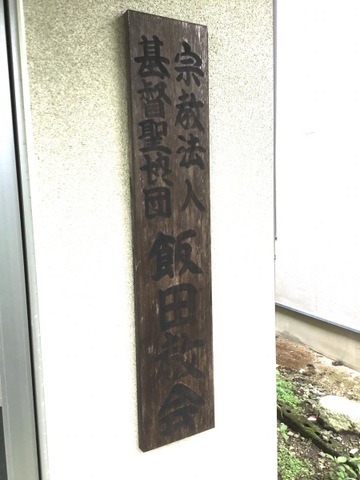 宗教法人
基督聖協団
飯田教会